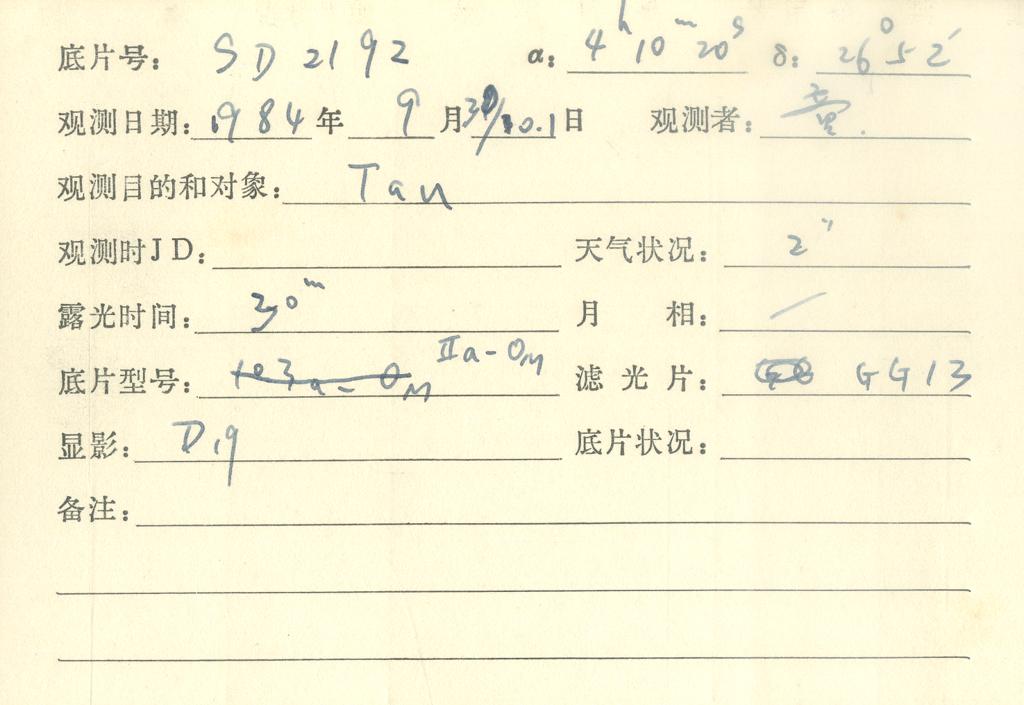 底片号： SD 2192 α： 4ʰ 10ᵐ 20ˢ δ： 26° 52′
观测日期： 1984 年 9 月 30/10.1 日 观测者：
观测目的和对象： Tau
观测时JD： 天气状况： 2″
露光时间： 30ᵐ 月 相： /
底片型号： 103a-O M IIa-OM 滤光片： GG13
显影： D19 底片状况：
备注：